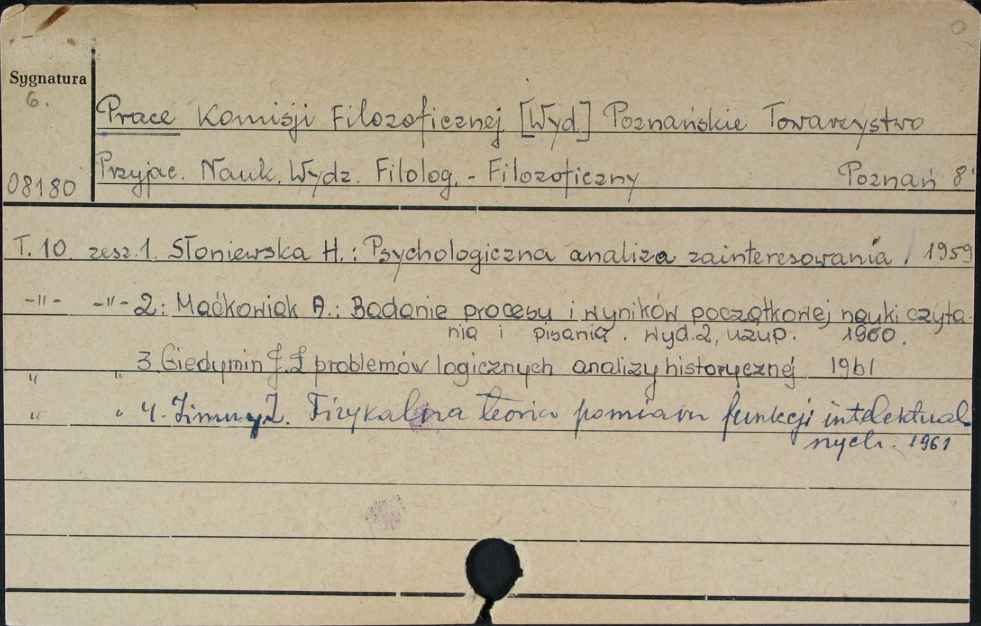 Sygnatura
6.
Prace Komisji Filozoficznej [Wyd.] Poznańskie Towarzystwo
Przyjac. Nauk. Wydz. Filolog. - Filozoficzny Poznań 8°
08180
T. 10. zesz. 1. Słoniewska H. : Psychologiczna analiza zainteresowania. 1959
-"- -"- 2: Maćkowiak A.: Badanie procesu i wyników początkowej nauki czyta-
nia i pisania. wyd. 2, uzup. 1960.
" " 3. Giedymin J. Z problemów logicznych analizy historycznej 1961
" " 4. Zimny Z. Fizykalna teoria pomiaru funkcji intelektual
nych. 1961